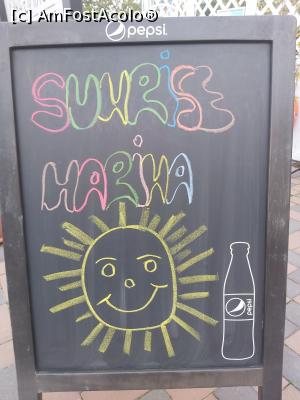 [c] AmFostAcolo®
pepsi.
SUNRISE
MARINA
pepsi